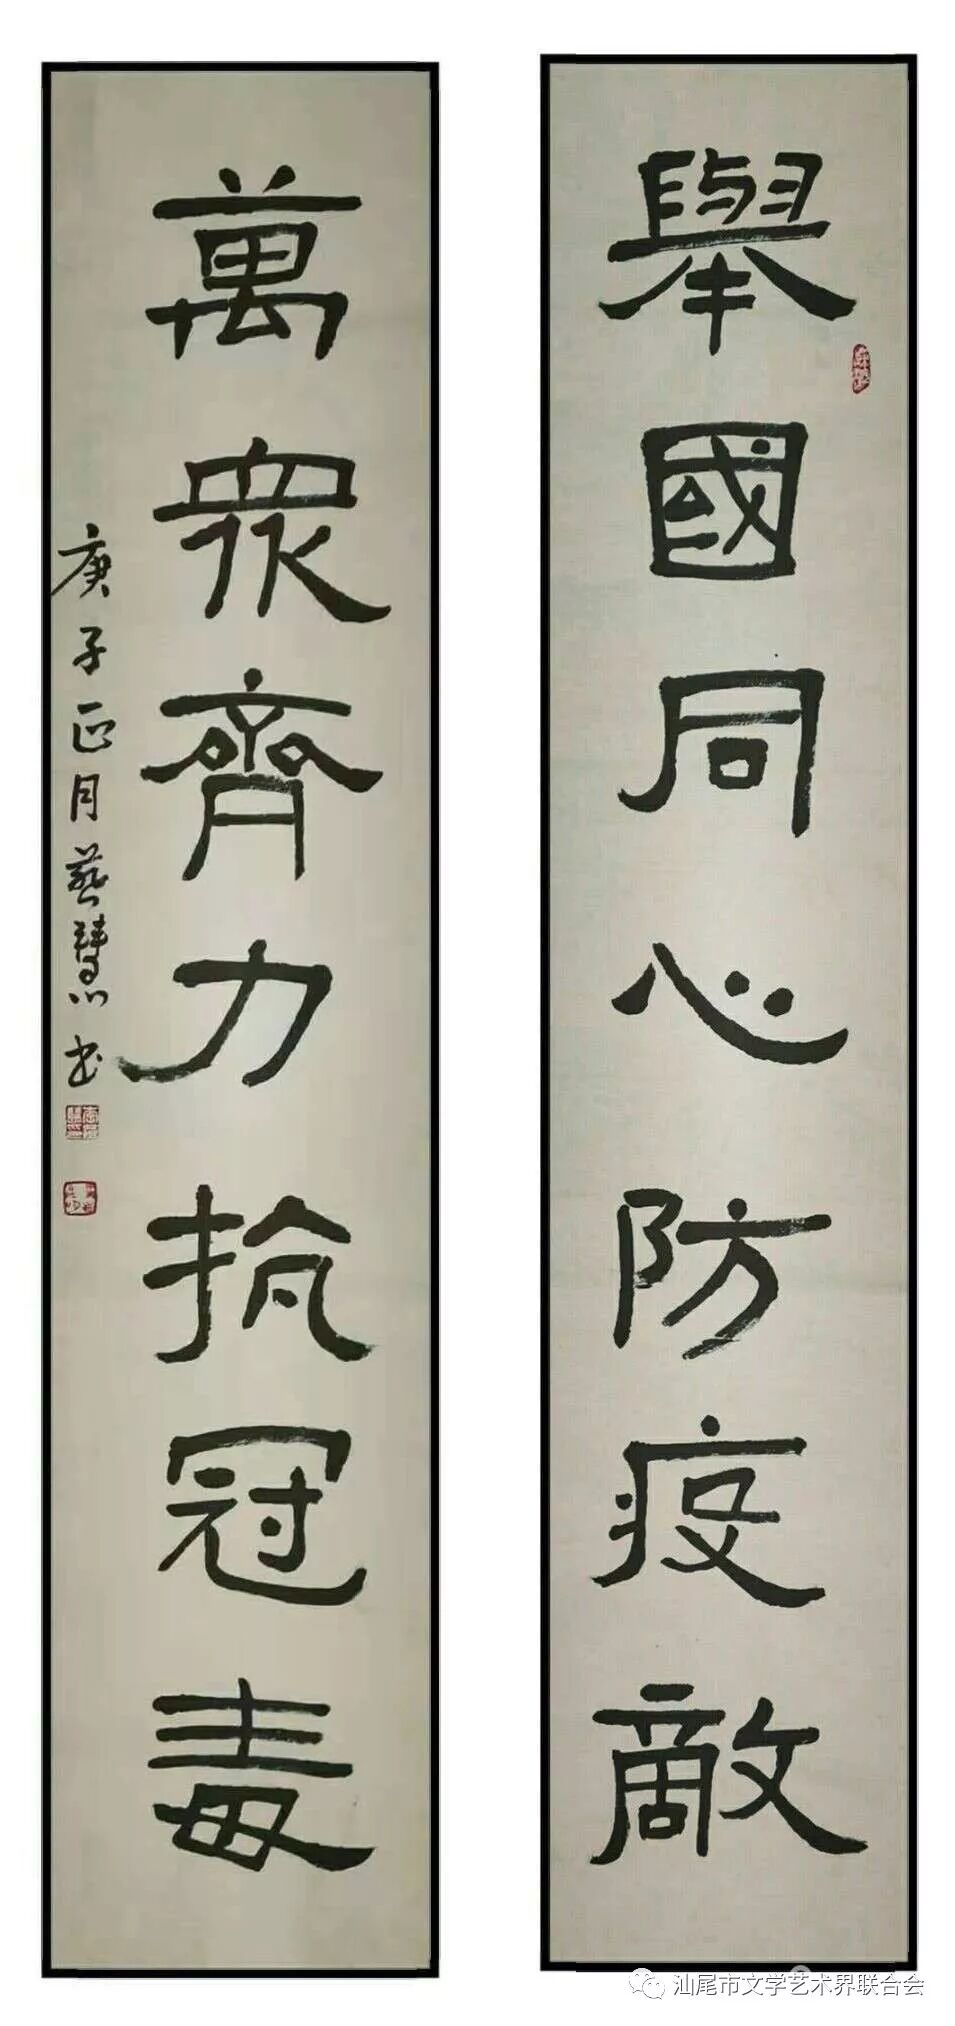 舉國同心防疫敵
萬眾齊力抗冠毒
庚子正月蔡慧書
汕尾市文学艺术界联合会